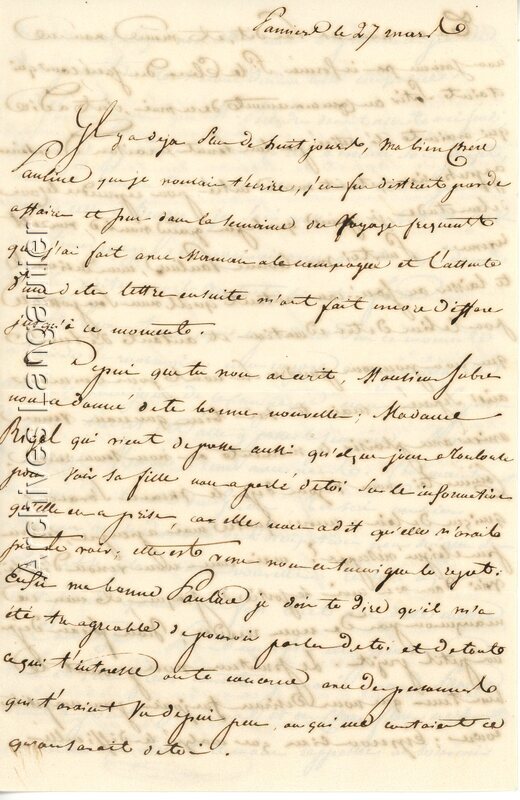 Pamiers le 27 mars
Il y a deja plus de huit jours, Ma bien Chere
Pauline que je voulais t'écrire, j'en fus distrait par de
affaires et puis dans la semaine des voyages frequents
que j'ai fait avec Maman a la campagne et l'attente
d'une de tes lettres ensuite m'ont fait encore differer
jusqu'à ce moment.
Depuis que tu nous as ecrit, Monsieur Fabre
nous a donné de tes bonnes nouvelles; Madame
Rigal qui vient de passer aussi quelques jours a Toulouse
pour voir sa fille nous a parlé de toi sur les informations
qu'elle en a prise, car elle nous a dit qu'elle n'avait
pu te voir; elle est venue nous en temoigner le regret:
Enfin ma bonne Pauline je dois te dire qu'il m'a
été tres agreable de pouvoir parler de toi et de tout
ce qui t'interesse ou te concerne avec des personnes
qui t'avaient vu depuis peu, ou qui me contaient ce
qu'on savait de toi.
Archives Langartier